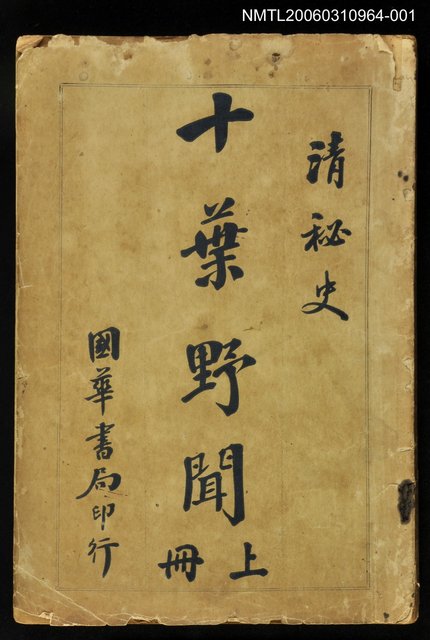 NMTL20060310964-001
清秘史
十葉野聞
上冊
國華書局印行